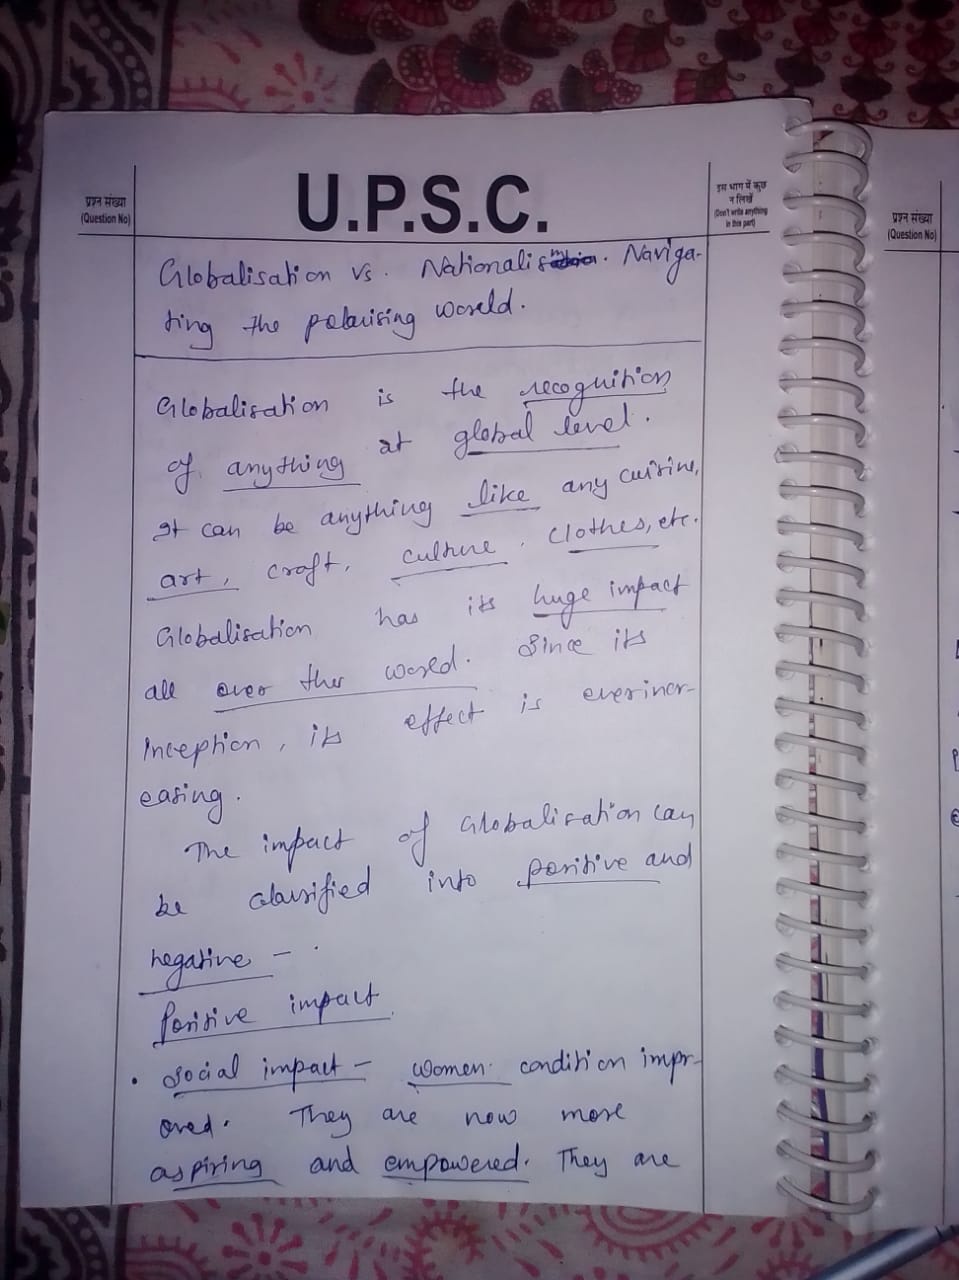 प्रश्न संख्या
(Question No)
U.P.S.C.
इस भाग में कुछ
न लिखें
(Don't write anything
in this part)
प्रश्न संख्या
(Question No)
Globalisation vs. Nationalism. Naviga-
ting the polarising world.
Globalisation is the recognition
of anything at global level.
It can be anything like any cuisine,
art, craft, culture, clothes, etc.
Globalisation has its huge impact
all over ther world. Since its
inception, its effect is everincr-
easing.
The impact of Globalisation can
be classified into positive and
negative -
Positive impact
• Social impact - women condition impr-
oved. They are now more
aspiring and empowered. They are